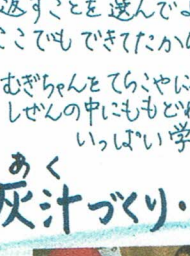 返すことを選んで
こでもできてたか
むぎちゃんをてらこやに
しぜんの中にももど
いっぱい学
あく
灰汁づくり・